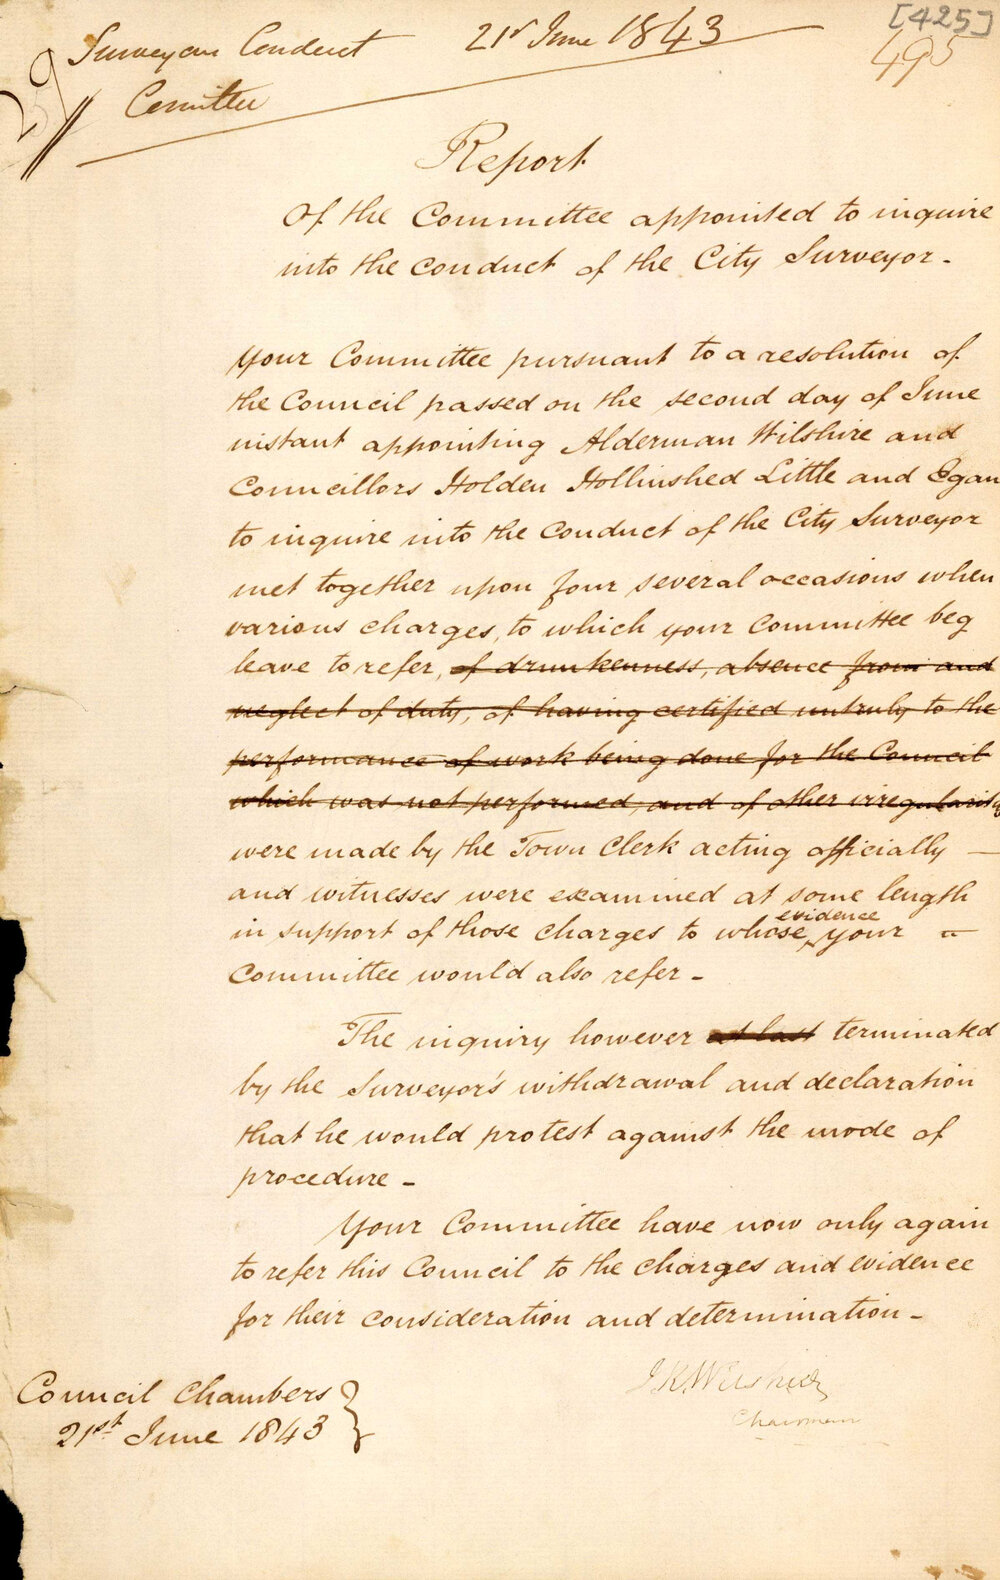 [425]
495
Surveyors Conduct 21st June 1843
Committee
259
Report
Of the Committee appointed to inquire
into the conduct of the City Surveyor -
Your Committee pursuant to a resolution of
the Council passed on the second day of June
instant appointing Alderman Wilshire and
Councillors Holden Hollinshed Little and Egan
to inquire into the conduct of the City Surveyor
met together upon four several occasions when
various charges, to which your Committee beg
leave to refer, of drunkenness, absence from and
neglect of duty, of having certified untruly to the
performance of work being done for the Council
which was not performed, and of other irregularities
were made by the Town Clerk acting officially —
and witnesses were examined at some length
evidence
in support of those charges to whose your -
Committee would also refer -
The inquiry however at last terminated
by the Surveyor's withdrawal and declaration
that he would protest against the mode of
procedure -
Your Committee have now only again
to refer this Council to the charges and evidence
for their consideration and determination -
J R Wilshire
Chairman
Council Chambers
21st June 1843